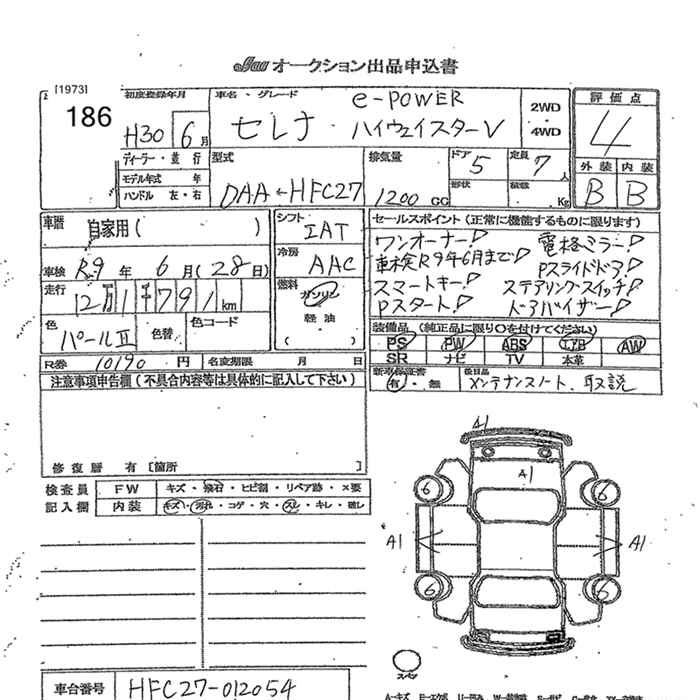 JAA オークション出品申込書
[1973]
186
初度登録年月 H30 6月
車名・グレード セレナ e-POWER ハイウェイスターV
2WD・4WD
評価点 4
ディーラー・並行
モデル年式 年
ハンドル 左・右
型式 DAA-HFC27
排気量 1200 CC
ドア 5
形状
定員 7人
積載 Kg
外装 B
内装 B
車歴 自家用( )
シフト IAT
セールスポイント(正常に機能するものに限ります)
冷房 AAC
ワンオーナー! 電格ミラー!
車検 R9年 6月(28日)
車検R9年6月まで! Pスライドドア!
スマートキー! ステアリングスイッチ!
Pスタート! ドアバイザー!
走行 12万1千791km
燃料 ガソリン
軽油
( )
色 パールII
色替
色コード
装備品(純正品に限り○を付けてください)
PS PW ABS エアB AW
SR ナビ TV 本革
R券 10190円 名変期限 月 日
新車保証書 有・無
後日品 メンテナンスノート、取説
注意事項申告欄(不具合内容等は具体的に記入して下さい)
修復歴 有 [箇所 ]
検査員 FW キズ・飛石・ヒビ割・リペア跡・×要
記入欄 内装 キズ・汚れ・コゲ・穴・スレ・キレ・破レ
A1
A1
6 6
A1 A1
6 6
スペア
車台番号 HFC27-012054